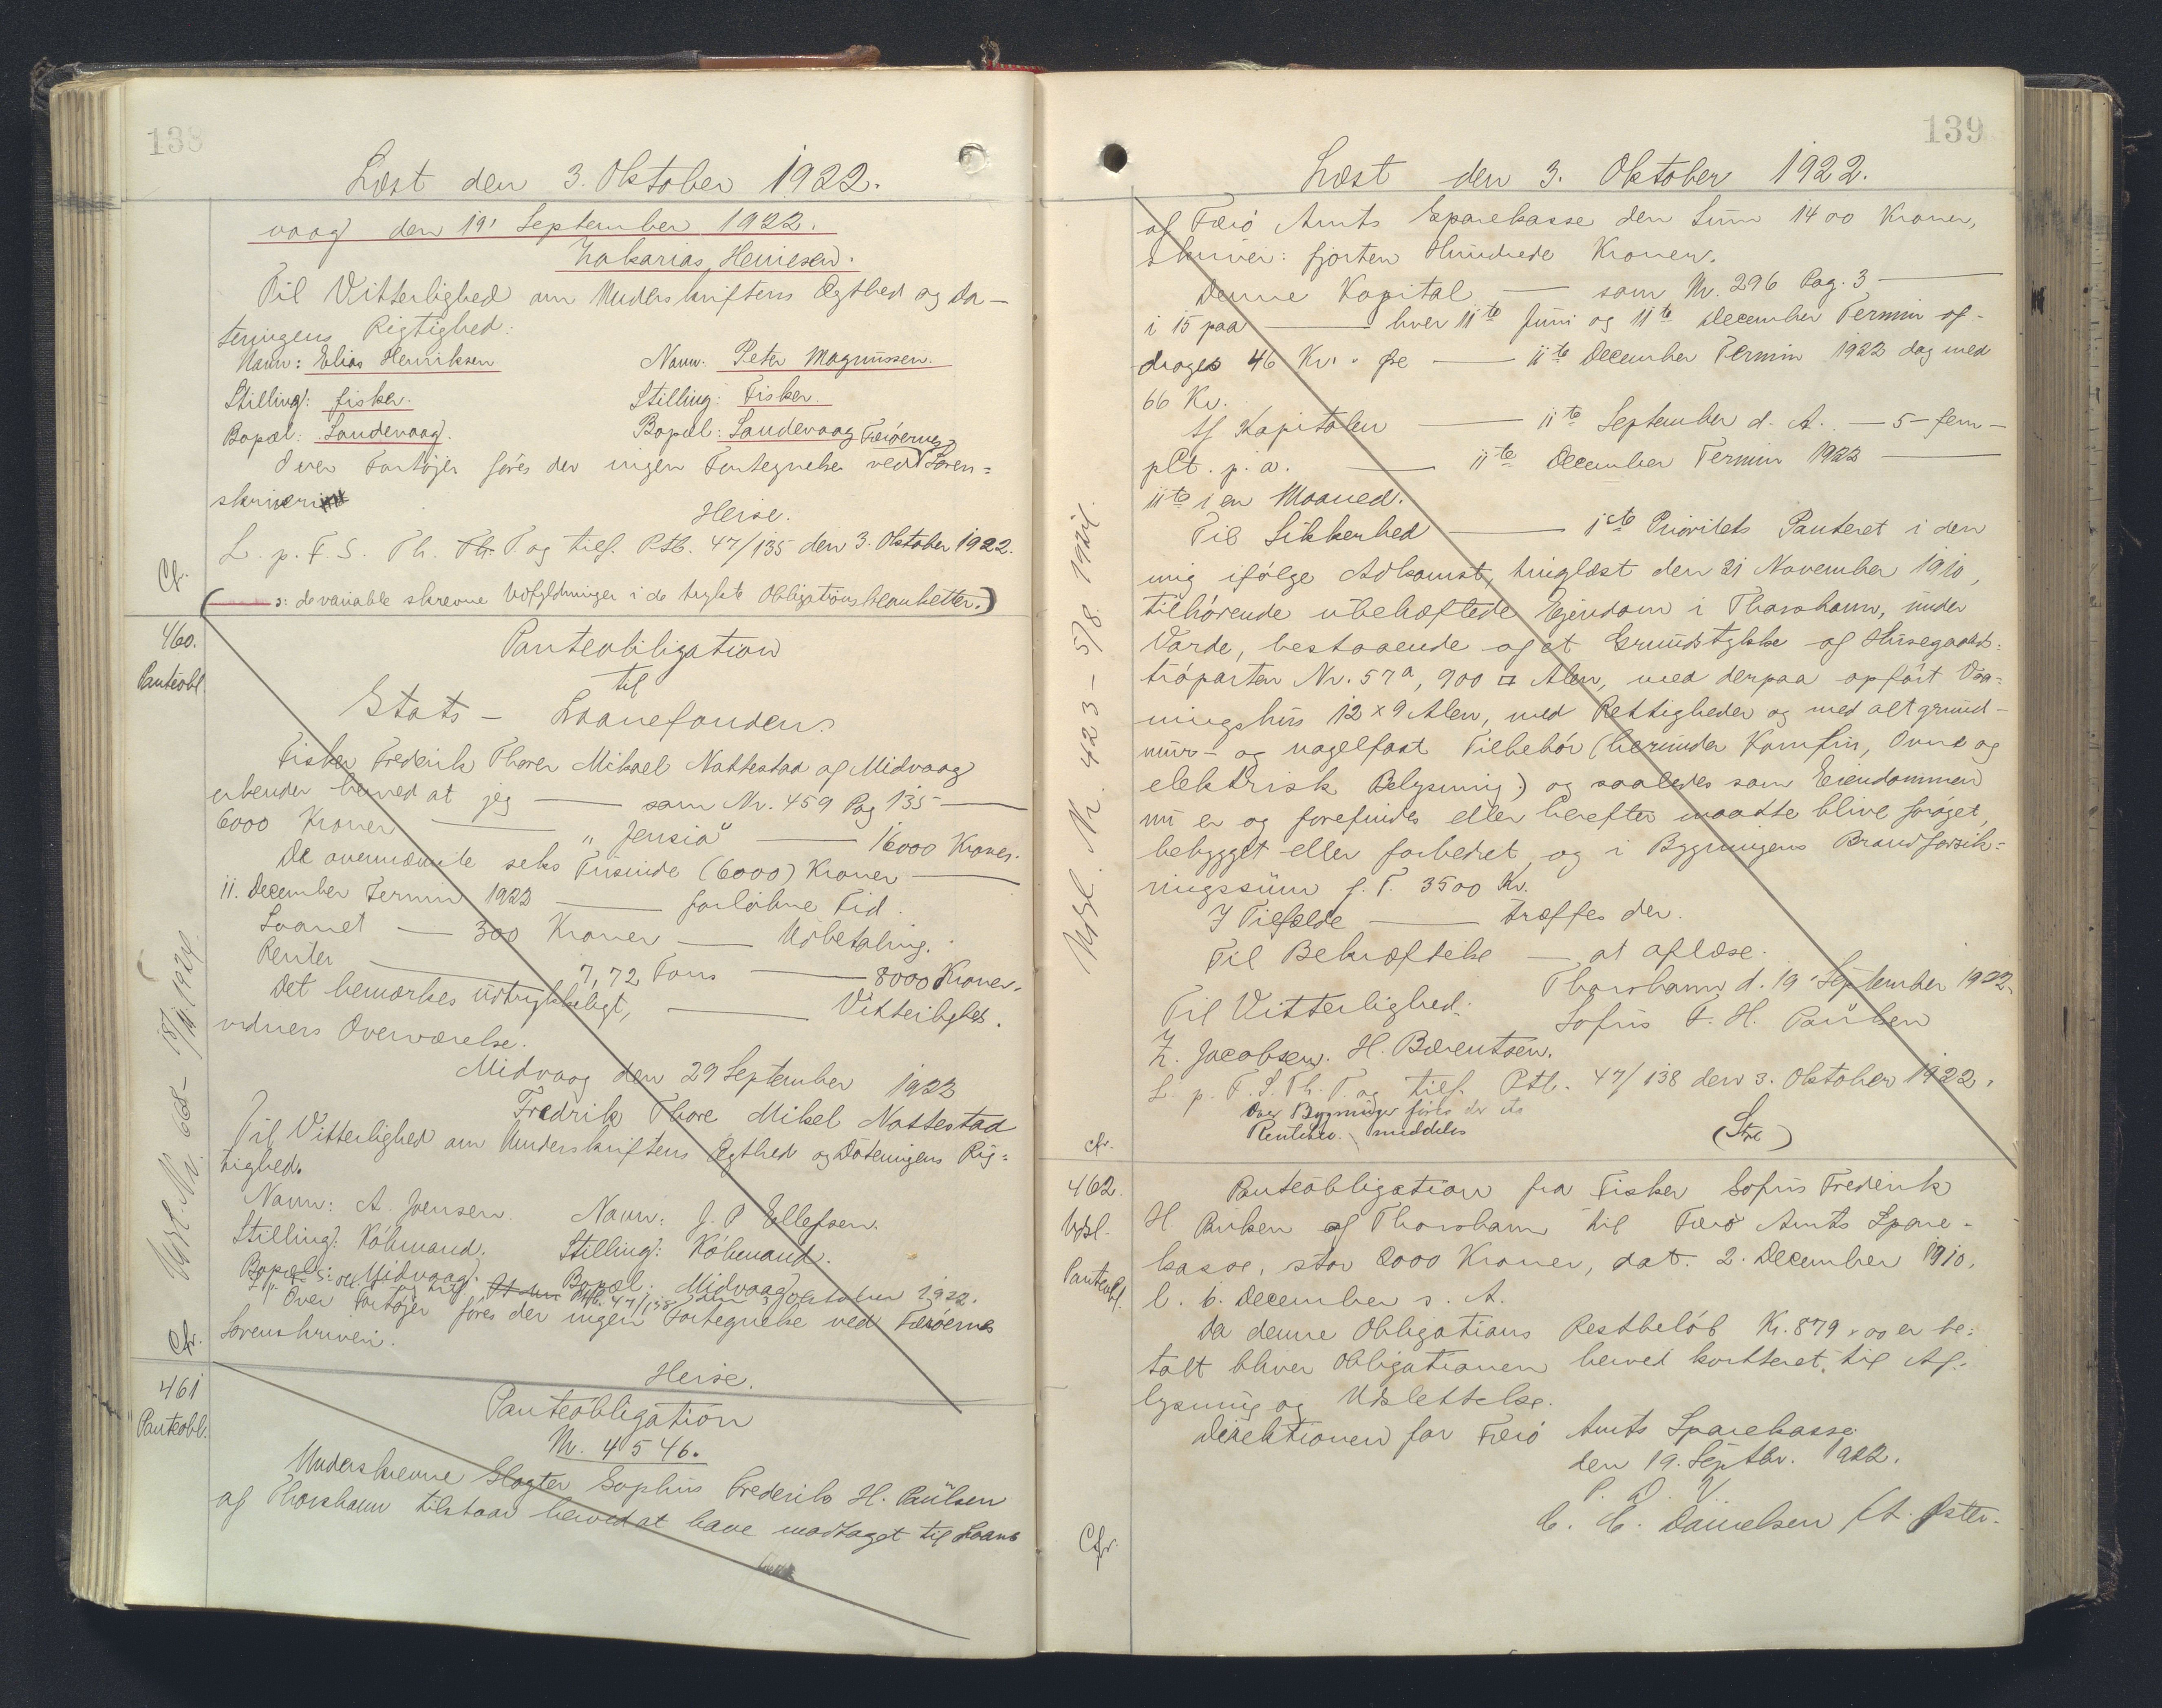 138
Læst den 3. Oktober 1922.
vaag den 19' September 1922.
Zakarias Heinesen.
Til Vitterlighed om Underskriftens Ægthed og Da-
teringens Rigtighed:
Navn: Elias Henriksen Navn. Peter Magnussen.
Stilling: fisker. Stilling: Fisker.
Bopæl: Sandevaag. Bopæl: Sandevaag
Over Fartøjer føres der ingen Fortegnelse ved Færøernes Soren-
skriveri
Heise.
L. p. F. S. Th. T. og tilf. Ptb. 47/135 den 3. Oktober 1922.
Cfr.
( s: de variable skrevne Udfyldninger i de trykte Obligationsblanketter.)
460.
Panteobl.
Panteobligation
til
Stats- Laanefonden.
Fisker Frederik Thorer Mikael Nattestad af Midvaag
erkender herved at jeg — som Nr. 459 Pag 135 —
6000 Kroner — "Jensia" — 16000 Kroner.
De ovennævnte seks Tusinde (6000) Kroner —
11. December Termin 1922 — forløbne Tid.
Laanet — 300 Kroner — Udbetaling.
Renter — 7,72 Tons — 8000 Kroner.
Det bemærkes udtrykkeligt, — Vitterligheds.
vidners Overværelse.
Midvaag den 29 September 1922
Fredrik Thore Mikel Nattestad
Til Vitterlighed om Underskriftens Ægthed og Dateringens Rig-
tighed.
Navn: A. Joensen. Navn: J. P. Ellefsen.
Stilling: Købmand. Stilling: Købmand.
Bopæl: Midvaag. Bopæl: Midvaag
L. p. F. S. og tilf. Ptb. 47/138 den 3 Oktober 1922.
Over Fartøjer føres der ingen Fortegnelse ved Færøernes
Sorenskriveri.
Cfr.
Heise.
Udsl. Nr. 668 - 1924.
461
Panteobl.
Panteobligation
Nr. 4546.
Underskrevne Slagter Sophus Frederik H. Paulsen
af Thorshavn tilstaar herved at have modtaget til Laans
139
Læst den 3. Oktober 1922.
af Færø Amts Sparekasse den Sum 1400 Kroner,
skriver: fjorten Hundrede Kroner.
Denne Kapital — som Nr. 296 Pag. 3 —
i 15 paa — hver 11te Juni og 11te December Termin af-
drages 46 Kr. " Øre — 11te December Termin 1922 dog med
66 Kr.
Af Kapitalen — 11te September d. A. — 5 - fem -
pCt. p. a. — 11te December Termin 1922 —
11te i en Maaned.
Til Sikkerhed — 1ste Prioritets Panteret i den
mig ifølge Adkomst, tinglæst den 21 November 1910,
tilhørende ubehæftede Ejendom i Thorshavn, under
Varde, bestaaende af et Grundstykke af Husegaards-
trøparten Nr. 57a, 900 □ Alen, med derpaa opført Vaa-
ningshus 12 x 9 Alen, med Rettigheder og med alt grund-
mur- og nagelfast Tilbehør (herunder Komfur, Ovne og
elektrisk Belysning) og saaledes som Ejendommen
nu er og forefindes eller herefter maatte blive forøget,
bebygget eller forbedret, og i Bygningens Brandforsik-
ringssum p. T. 3500 Kr.
I Tilfælde — træffes der.
Til Bekræftelse — at aflæse.
Thorshavn d. 19' September 1922.
Til Vitterlighed: Sofus F. H. Paulsen
Z. Jacobsen. H. Bærentsen.
L. p. F. S. Th. T. og tilf. Ptb. 47/138 den 3. Oktober 1922.
Over Bygninger føres der
meddeles
Cfr.
Udsl. Nr. 423 - 5/8 1931.
462.
Udsl.
Panteobl.
Panteobligation fra Fisker Sofus Frederik
H. Paulsen af Thorshavn til Færø Amts Spare-
kasse, stor 2000 Kroner, dat. 2. December 1910,
l. 6. December s. A.
Da denne Obligations Restbeløb Kr. 879,00 er be-
talt bliver Obligationen herved kvitteret til Af-
lysning og Udslettelse.
Direktionen for Færø Amts Sparekasse
den 19. Septbr. 1922.
P. D. V.
C. C. Danielsen A. Øster-
Cfr.